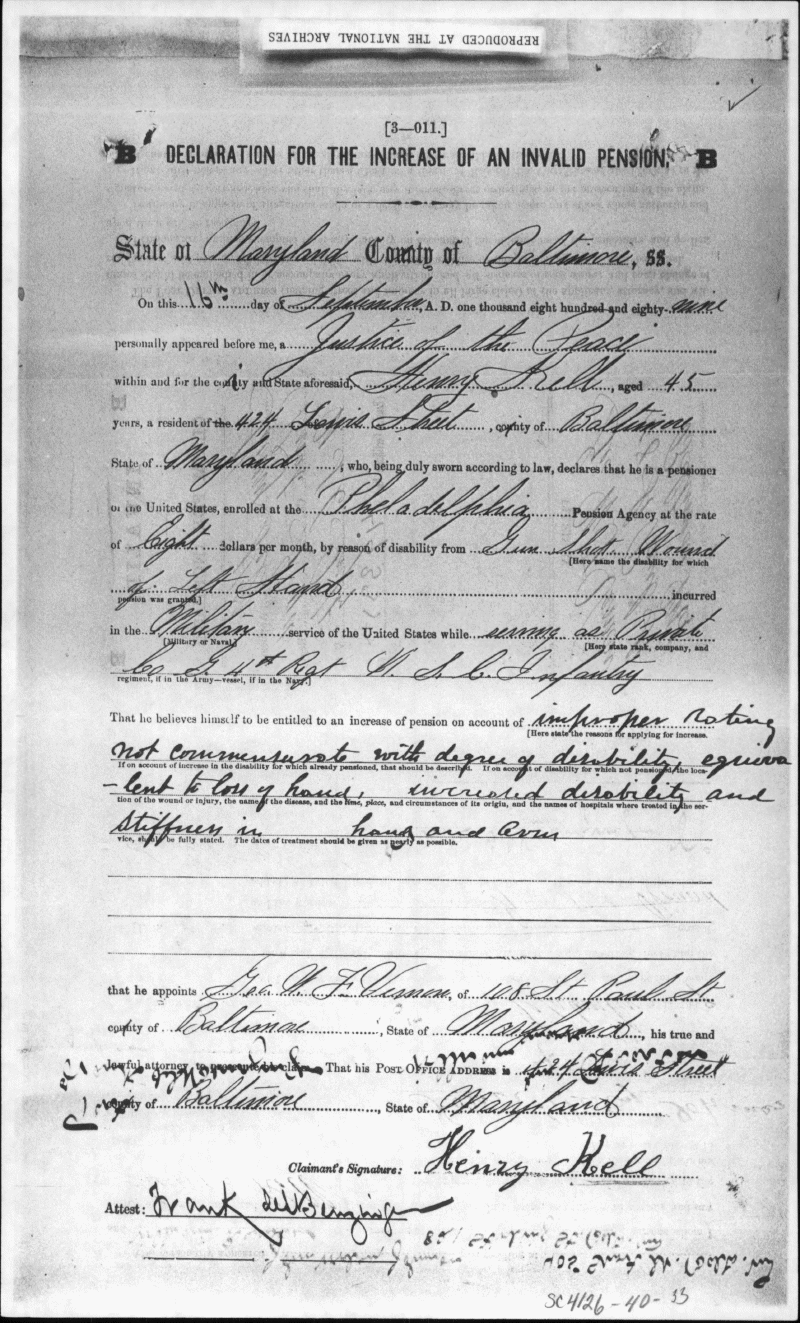 REPRODUCED AT THE NATIONAL ARCHIVES
[3—011.]
B DECLARATION FOR THE INCREASE OF AN INVALID PENSION. B
State of Maryland County of Baltimore, ss.
On this 16th day of September, A. D. one thousand eight hundred and eighty-nine
personally appeared before me, a Justice of the Peace
within and for the county and State aforesaid, Henry Kell, aged 45
years, a resident of the 424 Lewis Street, county of Baltimore
State of Maryland, who, being duly sworn according to law, declares that he is a pensioner
of the United States, enrolled at the Philadelphia Pension Agency at the rate
of Eight dollars per month, by reason of disability from Gun Shot Wound
[Here name the disability for which
of Left Hand incurred
pension was granted.]
in the Military service of the United States while serving as Private
[Military or Naval.] [Here state rank, company, and
Co G. 4th Regt U. S. C. Infantry
regiment, if in the Army—vessel, if in the Navy.]
That he believes himself to be entitled to an increase of pension on account of improper rating
[Here state the reasons for applying for increase.
not commensurate with degree of disability, equiva
If on account of increase in the disability for which already pensioned, that should be described. If on account of disability for which not pensioned, the loca-
-lent to loss of hand, increased disability and
tion of the wound or injury, the name of the disease, and the time, place, and circumstances of its origin, and the names of hospitals where treated in the ser-
stiffness in hand and arm
vice, should be fully stated. The dates of treatment should be given as nearly as possible.
that he appoints Geo. W. F. Vernon, of 108 St Paul St
county of Baltimore, State of Maryland, his true and
lawful attorney, to prosecute his claim. That his POST OFFICE ADDRESS is 424 Lewis Street
county of Baltimore, State of Maryland
Claimant's Signature: Henry Kell
Attest: Frank
SC4126-40-33